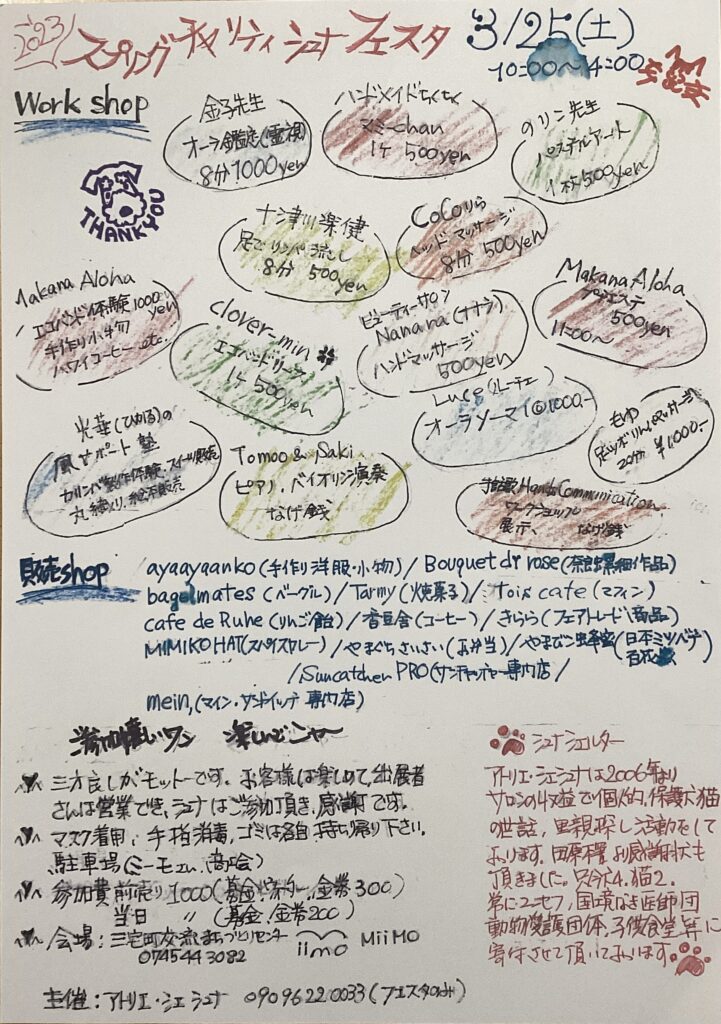 2023 スプリングチャリティ シュナ フェスタ 3/25(土)
10:00〜14:00
Work shop
金子先生
オーラ鑑定(霊視)
8分1000yen
ハンドメイドちくちく
マミーchan
1ケ 500yen
のリン先生
パステルアート
1枚500yen
十津川楽健
足でリンパ流し
8分 500yen
CoCoりら
ヘッドマッサージ
8分 500yen
Makana Aloha
エコバンド体験1000yen
手作り小物
ハワイコーヒー.etc.
clover-min
エコバンドリース
1ケ 500yen
ビューティーサロン
Nanana(ナナナ)
ハンドマッサージ
500yen
Makana Aloha
プチエステ
500yen
11:00〜
Luce(ルーチェ)
オーラソーマ1回1000-
足ツボ
20分 ¥1,000-
光華(ひかる)の
風サポート塾
カリンバ製作体験、スイーツ販売
絵本販売
Tomoo & Saki
ピアノ、バイオリン演奏
なげ銭
手話歌 Hands Communication
ワークショップ
展示、なげ銭
販売shop
ayaayaanko(手作り洋服・小物)/Bouquet di rose(奈良墨細作品)
bagelmates(ベーグル)/Tarmy(焼菓子)/Toix cafe(マフィン)
cafe de Ruhe(りんご飴)/香豆舎(コーヒー)/きらら(フェアトレード商品)
MIMIKO HAT(スパイスカレー)/やまぐちさいさい(お弁当)/やまびこ蜂蜜(日本ミツバチ百花蜜)
/Suncatcher PRO(サンキャッチャー専門店/
mein,(マイン・サンドイッチ専門店)
ご参加嬉しいワン 楽しいでニャー
三方良しがモットーです。お客様は楽しめて、出展者
さんは営業でき、シュナはご参加頂き、感謝です。
マスク着用、手指消毒、ゴミは各自持ち帰り下さい。
駐車場(ミーモ、商工会)
参加費 前売り 1000(募金、金券300)
当日 〃 (募金、金券200)
会場:三宅町交流まちづくりセンター iimo MiiMO
0745443082
主催:アトリエ・シェ シュナ 09096220033(フェスタのみ)
シュナシェルター
アトリエ・シェシュナは2006年より
サロンの収益で個人的、保護犬猫
の世話、里親探し活動をして
おります。田原本署より感謝状も
頂きました。只今犬4.猫2.
常にユニセフ、国境なき医師団
動物愛護団体、子供食堂等に
寄付させて頂いております。
THANKYOU